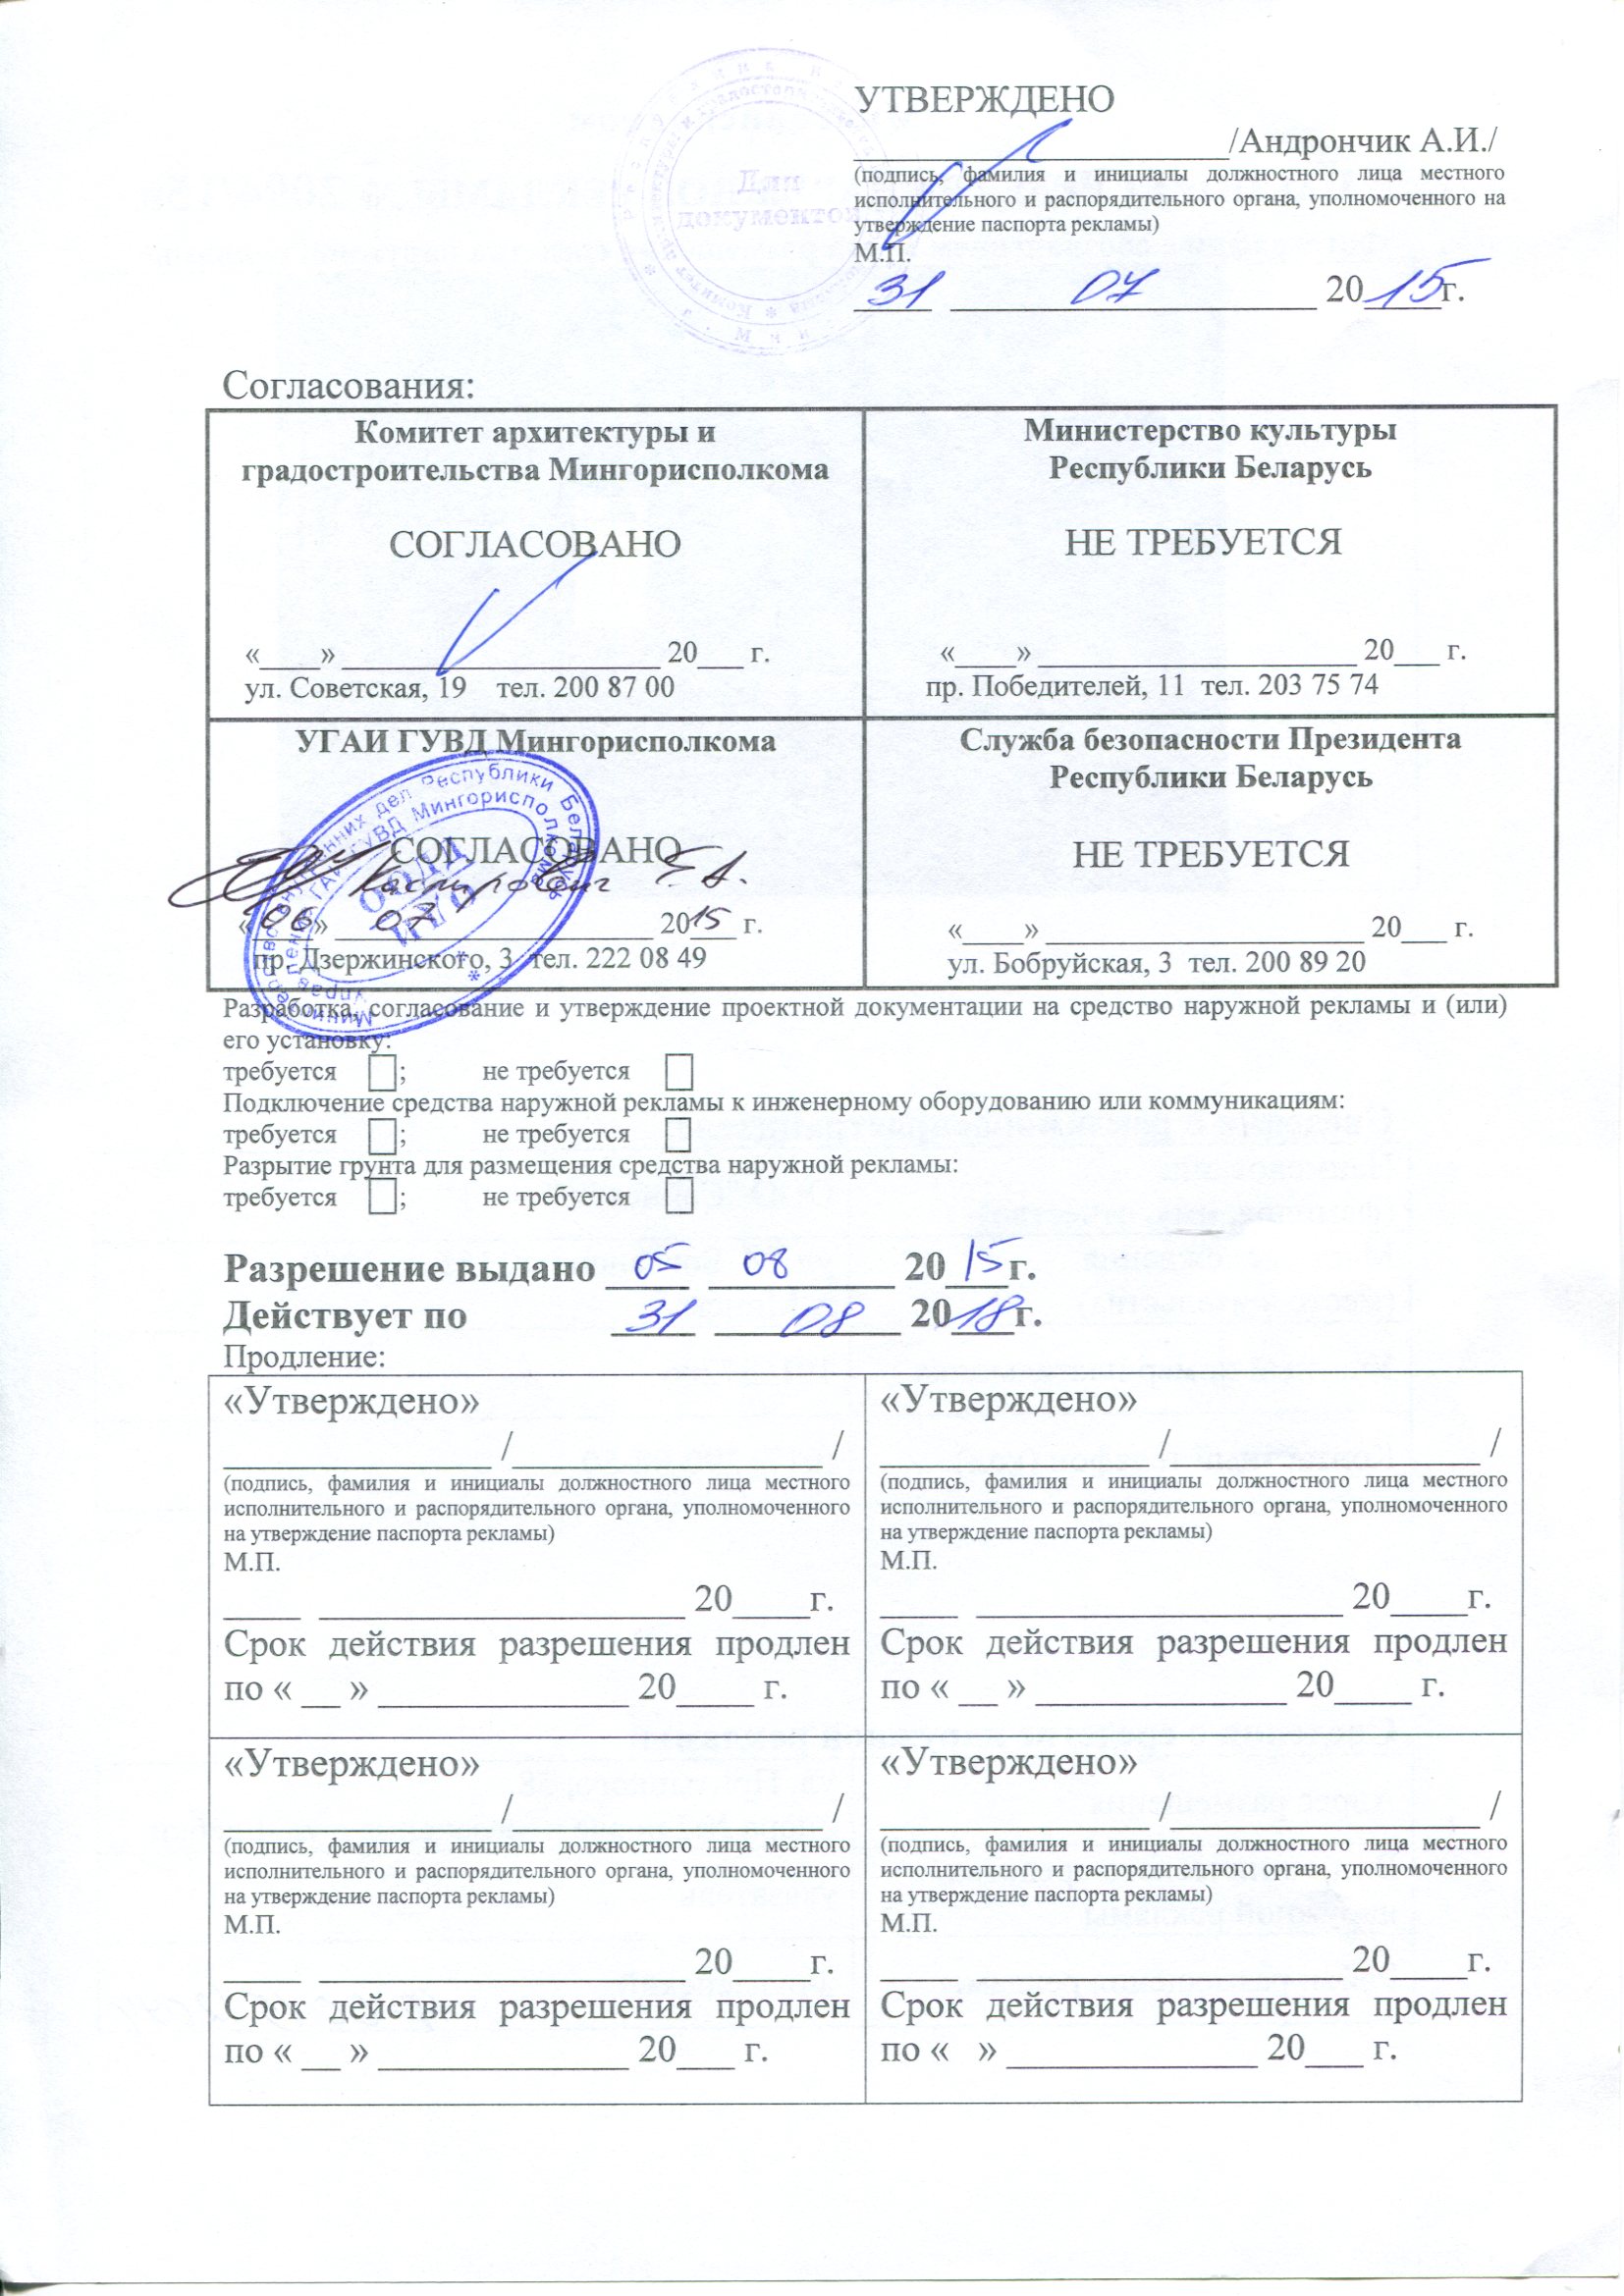 УТВЕРЖДЕНО
____________________/Андрончик А.И./
(подпись, фамилия и инициалы должностного лица местного
исполнительного и распорядительного органа, уполномоченного на
утверждение паспорта рекламы)
М.П.
31 07 2015г.
Для
документов
Согласования:
Комитет архитектуры и
градостроительства Мингорисполкома
СОГЛАСОВАНО
«____» _____________________ 20___ г.
ул. Советская, 19 тел. 200 87 00
Министерство культуры
Республики Беларусь
НЕ ТРЕБУЕТСЯ
«____» _____________________ 20___ г.
пр. Победителей, 11 тел. 203 75 74
УГАИ ГУВД Мингорисполкома
СОГЛАСОВАНО
Каспирович Е.А.
«06» 07 2015 г.
пр. Дзержинского, 3 тел. 222 08 49
Служба безопасности Президента
Республики Беларусь
НЕ ТРЕБУЕТСЯ
«____» _____________________ 20___ г.
ул. Бобруйская, 3 тел. 200 89 20
Разработка, согласование и утверждение проектной документации на средство наружной рекламы и (или)
его установку:
требуется ; не требуется
Подключение средства наружной рекламы к инженерному оборудованию или коммуникациям:
требуется ; не требуется
Разрытие грунта для размещения средства наружной рекламы:
требуется ; не требуется
Разрешение выдано 05 08 2015г.
Действует по 31 08 2018г.
Продление:
«Утверждено»
______________ /________________ /
(подпись, фамилия и инициалы должностного лица местного
исполнительного и распорядительного органа, уполномоченного
на утверждение паспорта рекламы)
М.П.
____ ___________________ 20____г.
Срок действия разрешения продлен
по « __ » _____________ 20____ г.
«Утверждено»
______________ /________________ /
(подпись, фамилия и инициалы должностного лица местного
исполнительного и распорядительного органа, уполномоченного
на утверждение паспорта рекламы)
М.П.
____ ___________________ 20____г.
Срок действия разрешения продлен
по « __ » _____________ 20____ г.
«Утверждено»
______________ /________________ /
(подпись, фамилия и инициалы должностного лица местного
исполнительного и распорядительного органа, уполномоченного
на утверждение паспорта рекламы)
М.П.
____ ___________________ 20____г.
Срок действия разрешения продлен
по « __ » _____________ 20___ г.
«Утверждено»
______________ /________________ /
(подпись, фамилия и инициалы должностного лица местного
исполнительного и распорядительного органа, уполномоченного
на утверждение паспорта рекламы)
М.П.
____ ___________________ 20____г.
Срок действия разрешения продлен
по « » _____________ 20___ г.